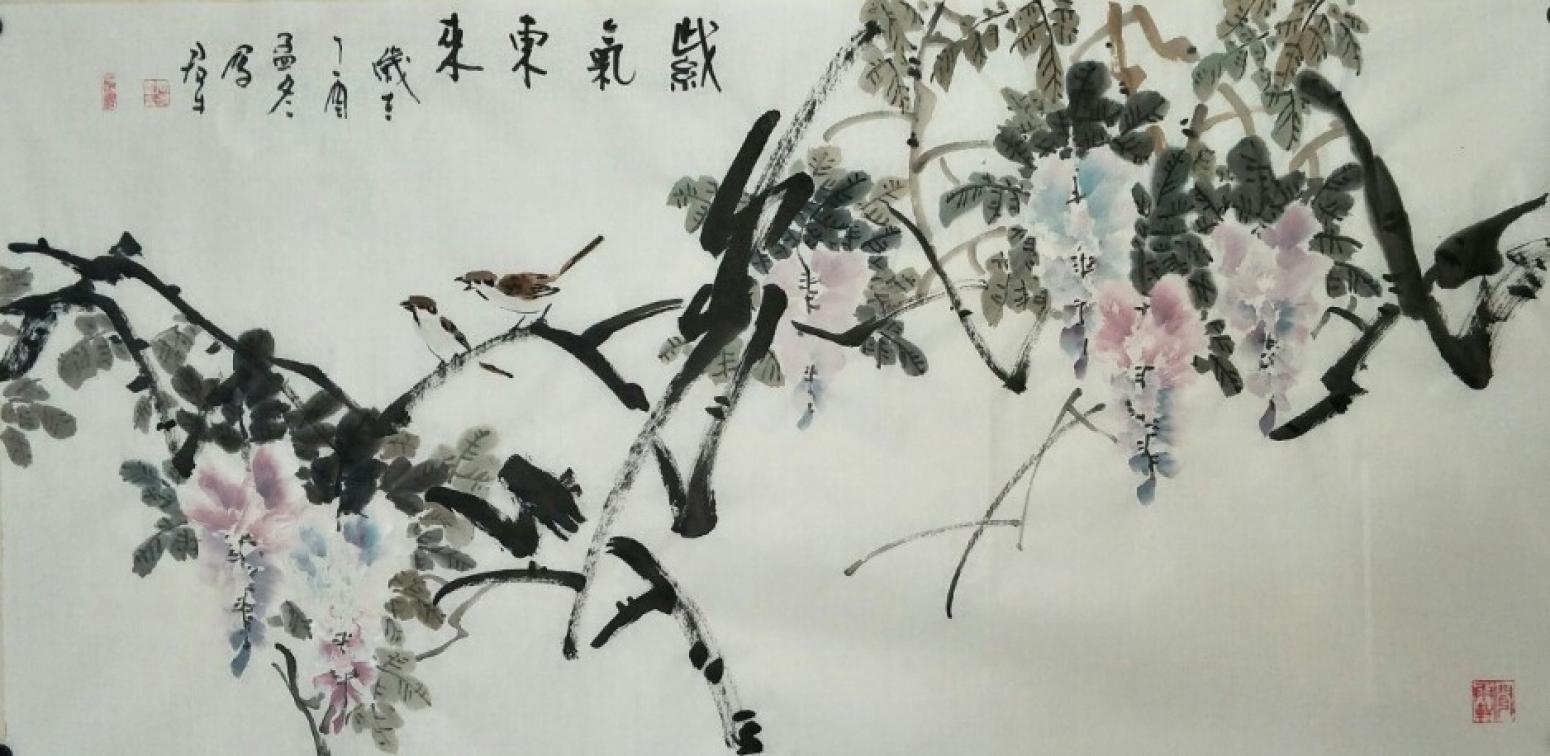 紫氣東來
歲在
丁酉
孟冬
寫